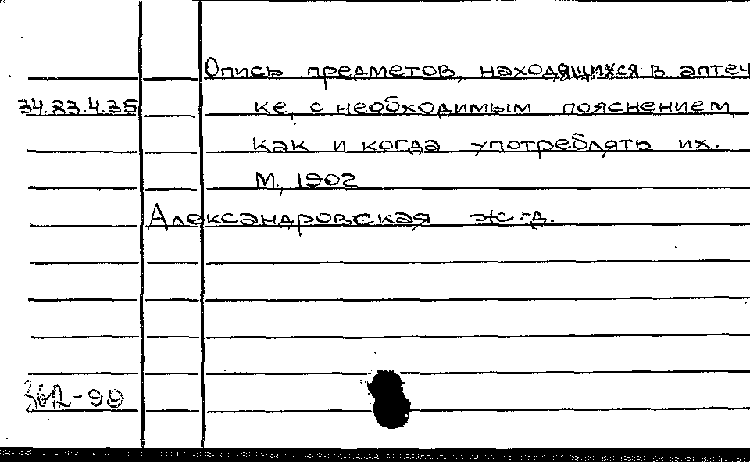 Опись предметов, находящихся в аптеч
34.23.4.35 ке, с необходимым пояснением,
как и когда употреблять их.
М, 1902
Александровская ж.-д.